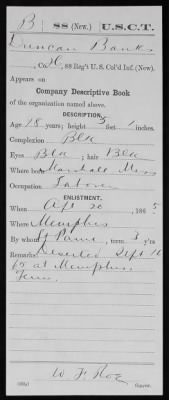 B | 88 (New.) | U.S.C.T.
Duncan Banks
, Co. H, 88 Reg't U. S. Col'd Inf. (New).
Company Descriptive Book
of the organization named above.
DESCRIPTION.
Age 18 years; height 5 feet 1 inches.
Complexion Blk
Eyes Blk; hair Blk
Where born Marshall Miss
Occupation Laborer
ENLISTMENT.
When Apl 20, 1865
Where Memphis
By whom Lt Paine, term 3 y'rs
Remarks: Deserted Sept 16
65 at Memphis
Tenn.
W F Roe
Copyist.